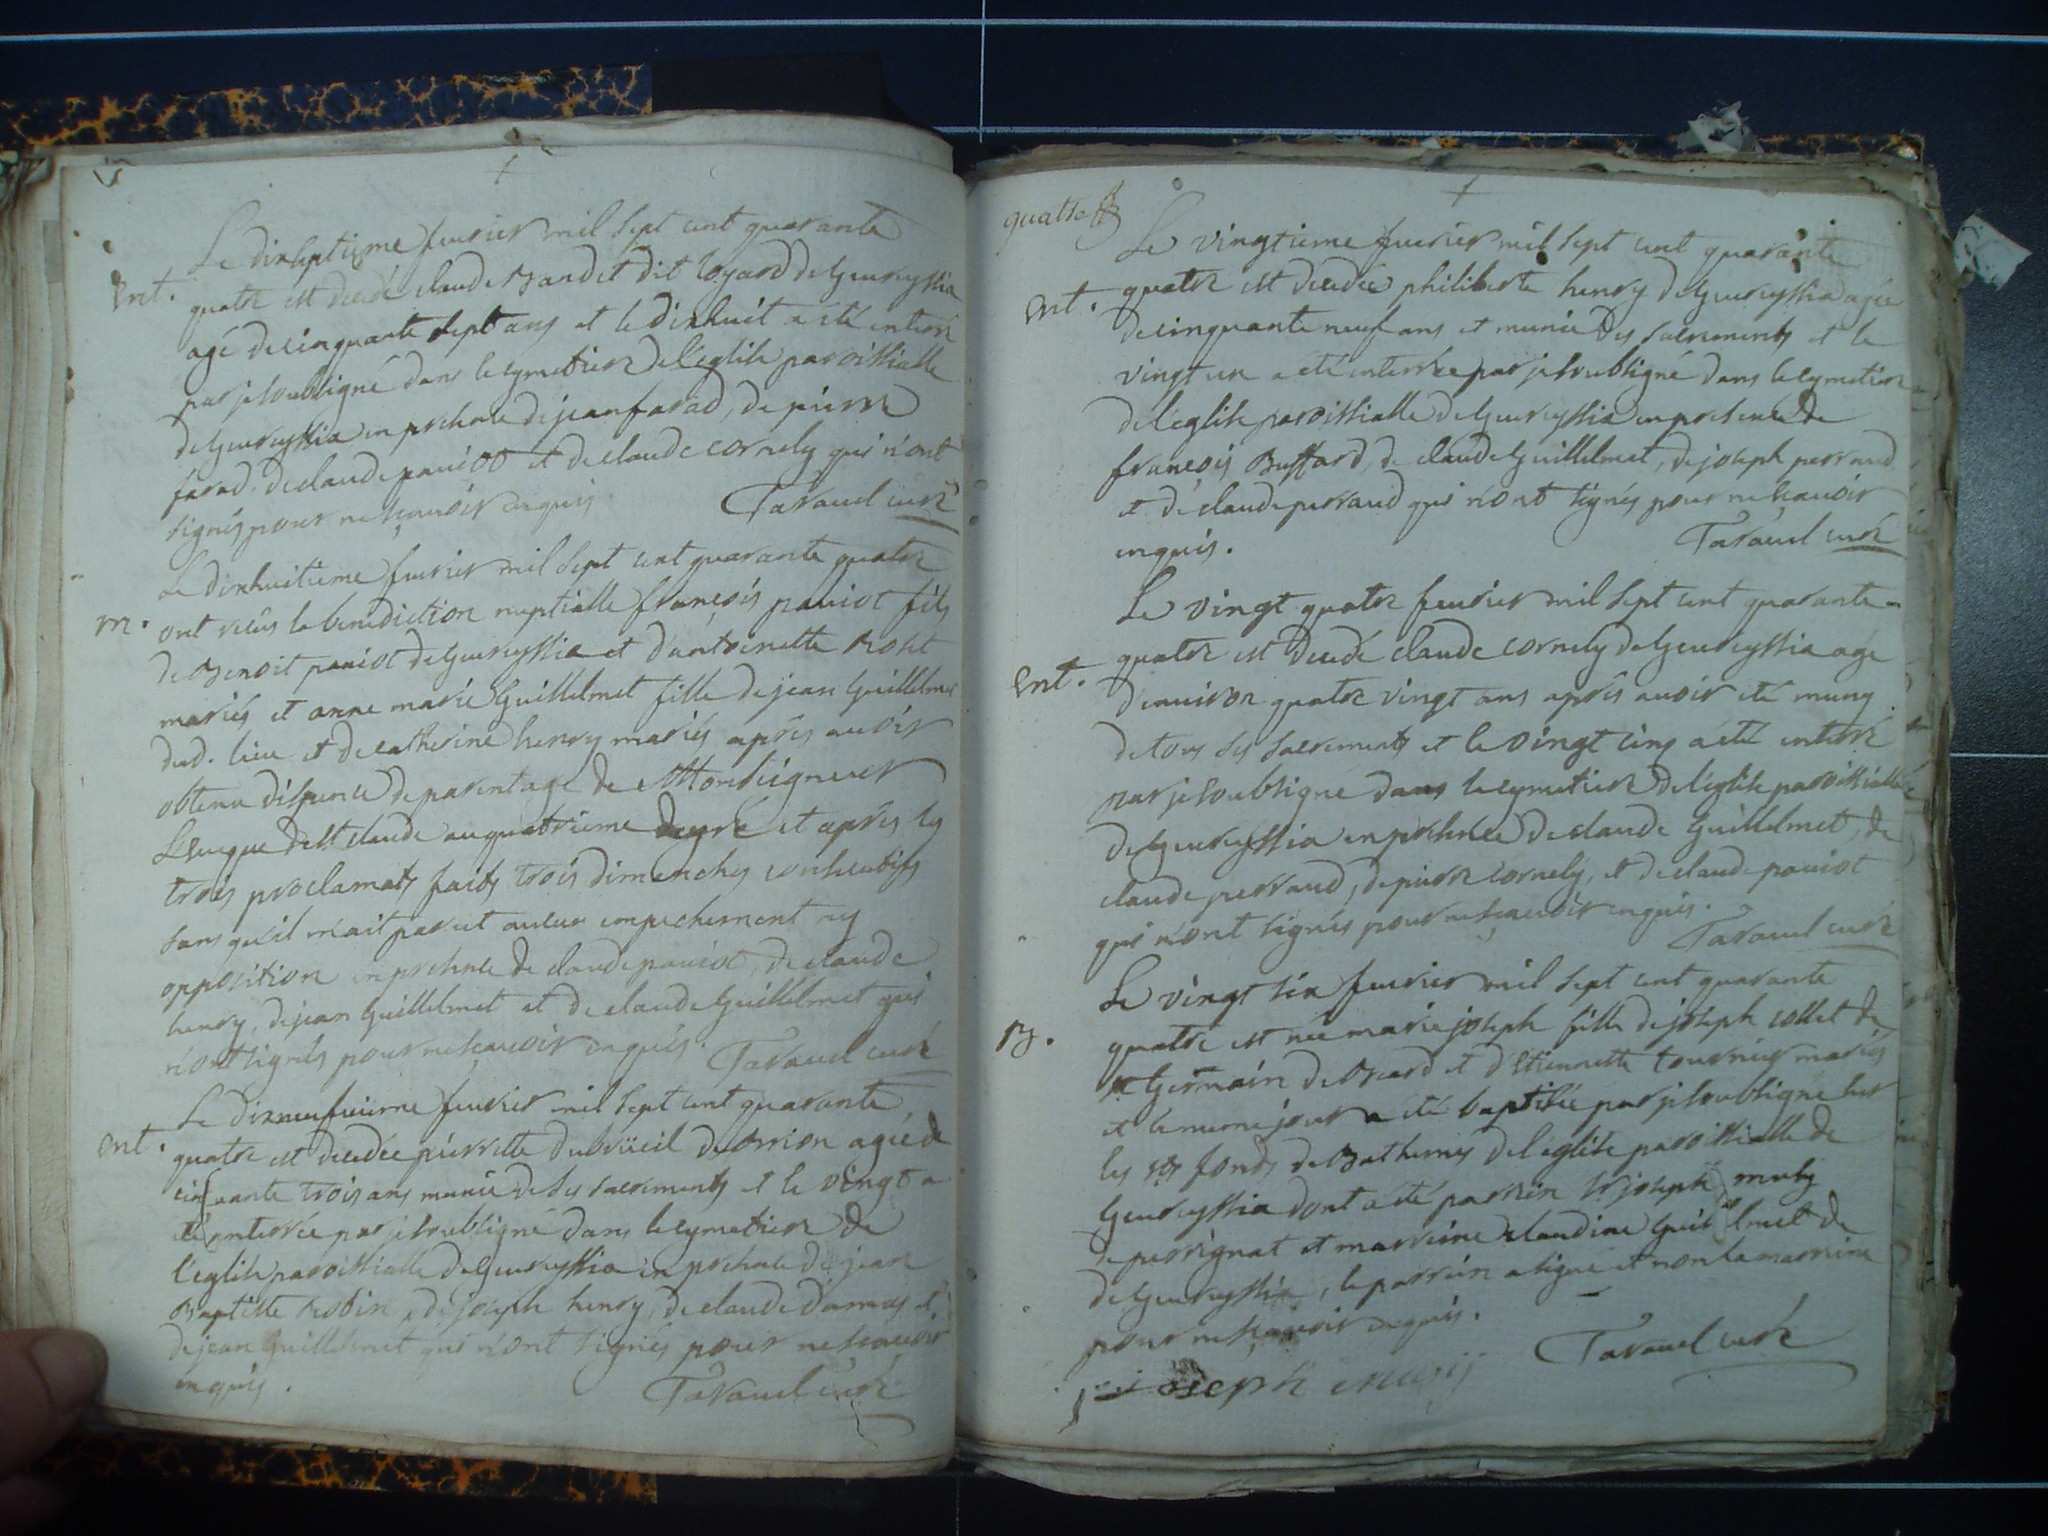 Le dixseptieme feuvrier mil sept cent quarante
Ent.
quatre est decedé claude Bandet dit loyard de Geureyssia
agé de cinquante sept ans et le dixhuit a eté enterré
par je soubsigné dans le cymetiere de l'eglise paroissialle
de Geureyssia en presence de jean farad, de pierre
farad, de claude paviot et de claude cornely qui n'ont
signés pour ne sçavoir enquis. Taravel curé
Le dixhuitieme feuvrier mil sept cent quarante quatre
m.
ont reçus la benediction nuptialle françois paviot fils
de Benoit paviot de Geureyssia et d'antoinette Roset
mariés et anne marie Guillelmet fille de jean Guillelmet
dud. lieu et de catherine henry mariés après avoir
obtenu dispence de parentage de Monseigneur
L'eveque de St claude au quatrieme degré et après les
trois proclamats faits trois dimenches consecutifs
sans qu'il n'ait parut aucun empechement ny
opposition en presence de claude paviot, de claude
henry, de jean Guillelmet et de claude Guillelmet qui
n'ont signés pour ne sçavoir enquis. Taravel curé
Le dixneufvieme feuvrier mil sept cent quarante
Ent.
quatre est decedée pierrette dubrüeil de orrion agée de
cinquante trois ans munie de ses sacrements et le vingt a
eté enterrée par je soubsigné dans le cymetiere de
l'eglise paroissialle de Geureyssia en presence de jean
Baptiste Robin, de joseph henry, de claude damas et
de jean Guillelmet qui n'ont signés pour ne scavoir
enquis. Taravel curé
quatre
Le vingtieme feuvrier mil sept cent quarante
Ent.
quatre est decedée philiberte henry de Geureyssia agée
de cinquante neuf ans et munie des sacrements et le
vingt un a eté enterrée par je soubsigné dans le cymetiere
de l'eglise paroissialle de Geureyssia en presence de
françois Buffard, de claude Guillelmet, de joseph perraud
et de claude perraud qui n'ont signés pour ne sçavoir
enquis. Taravel curé
Le vingt quatre feuvrier mil sept cent quarante
Ent.
quatre est decedé claude cornely de Geureyssia agé
d'environ quatre vingt ans après avoir eté muny
de tous ses sacrements et le vingt cinq a eté enterré
par je soubsigné dans le cymetiere de l'eglise paroissialle
de Geureyssia en presence de claude Guillelmet, de
claude perraud, de pierre cornely, et de claude paviot
qui n'ont signés pour ne sçavoir enquis.
Taravel curé
Le vingt six feuvrier mil sept cent quarante
B.
quatre est née marie joseph fille de joseph collet de
St Germain de Beard et d'Etiennette tournier mariés
et le meme jour a eté baptisée par je soubsigné sur
les sts fonds de Bathemes de l'eglise paroissialle de
Geureyssia dont a eté parrin Sr joseph
de perrignat et marreine claudine Guillelmet de
de Geureyssia, le parrein a signé et non la marreine
pour ne sçavoir enquis.
Taravel curé
joseph